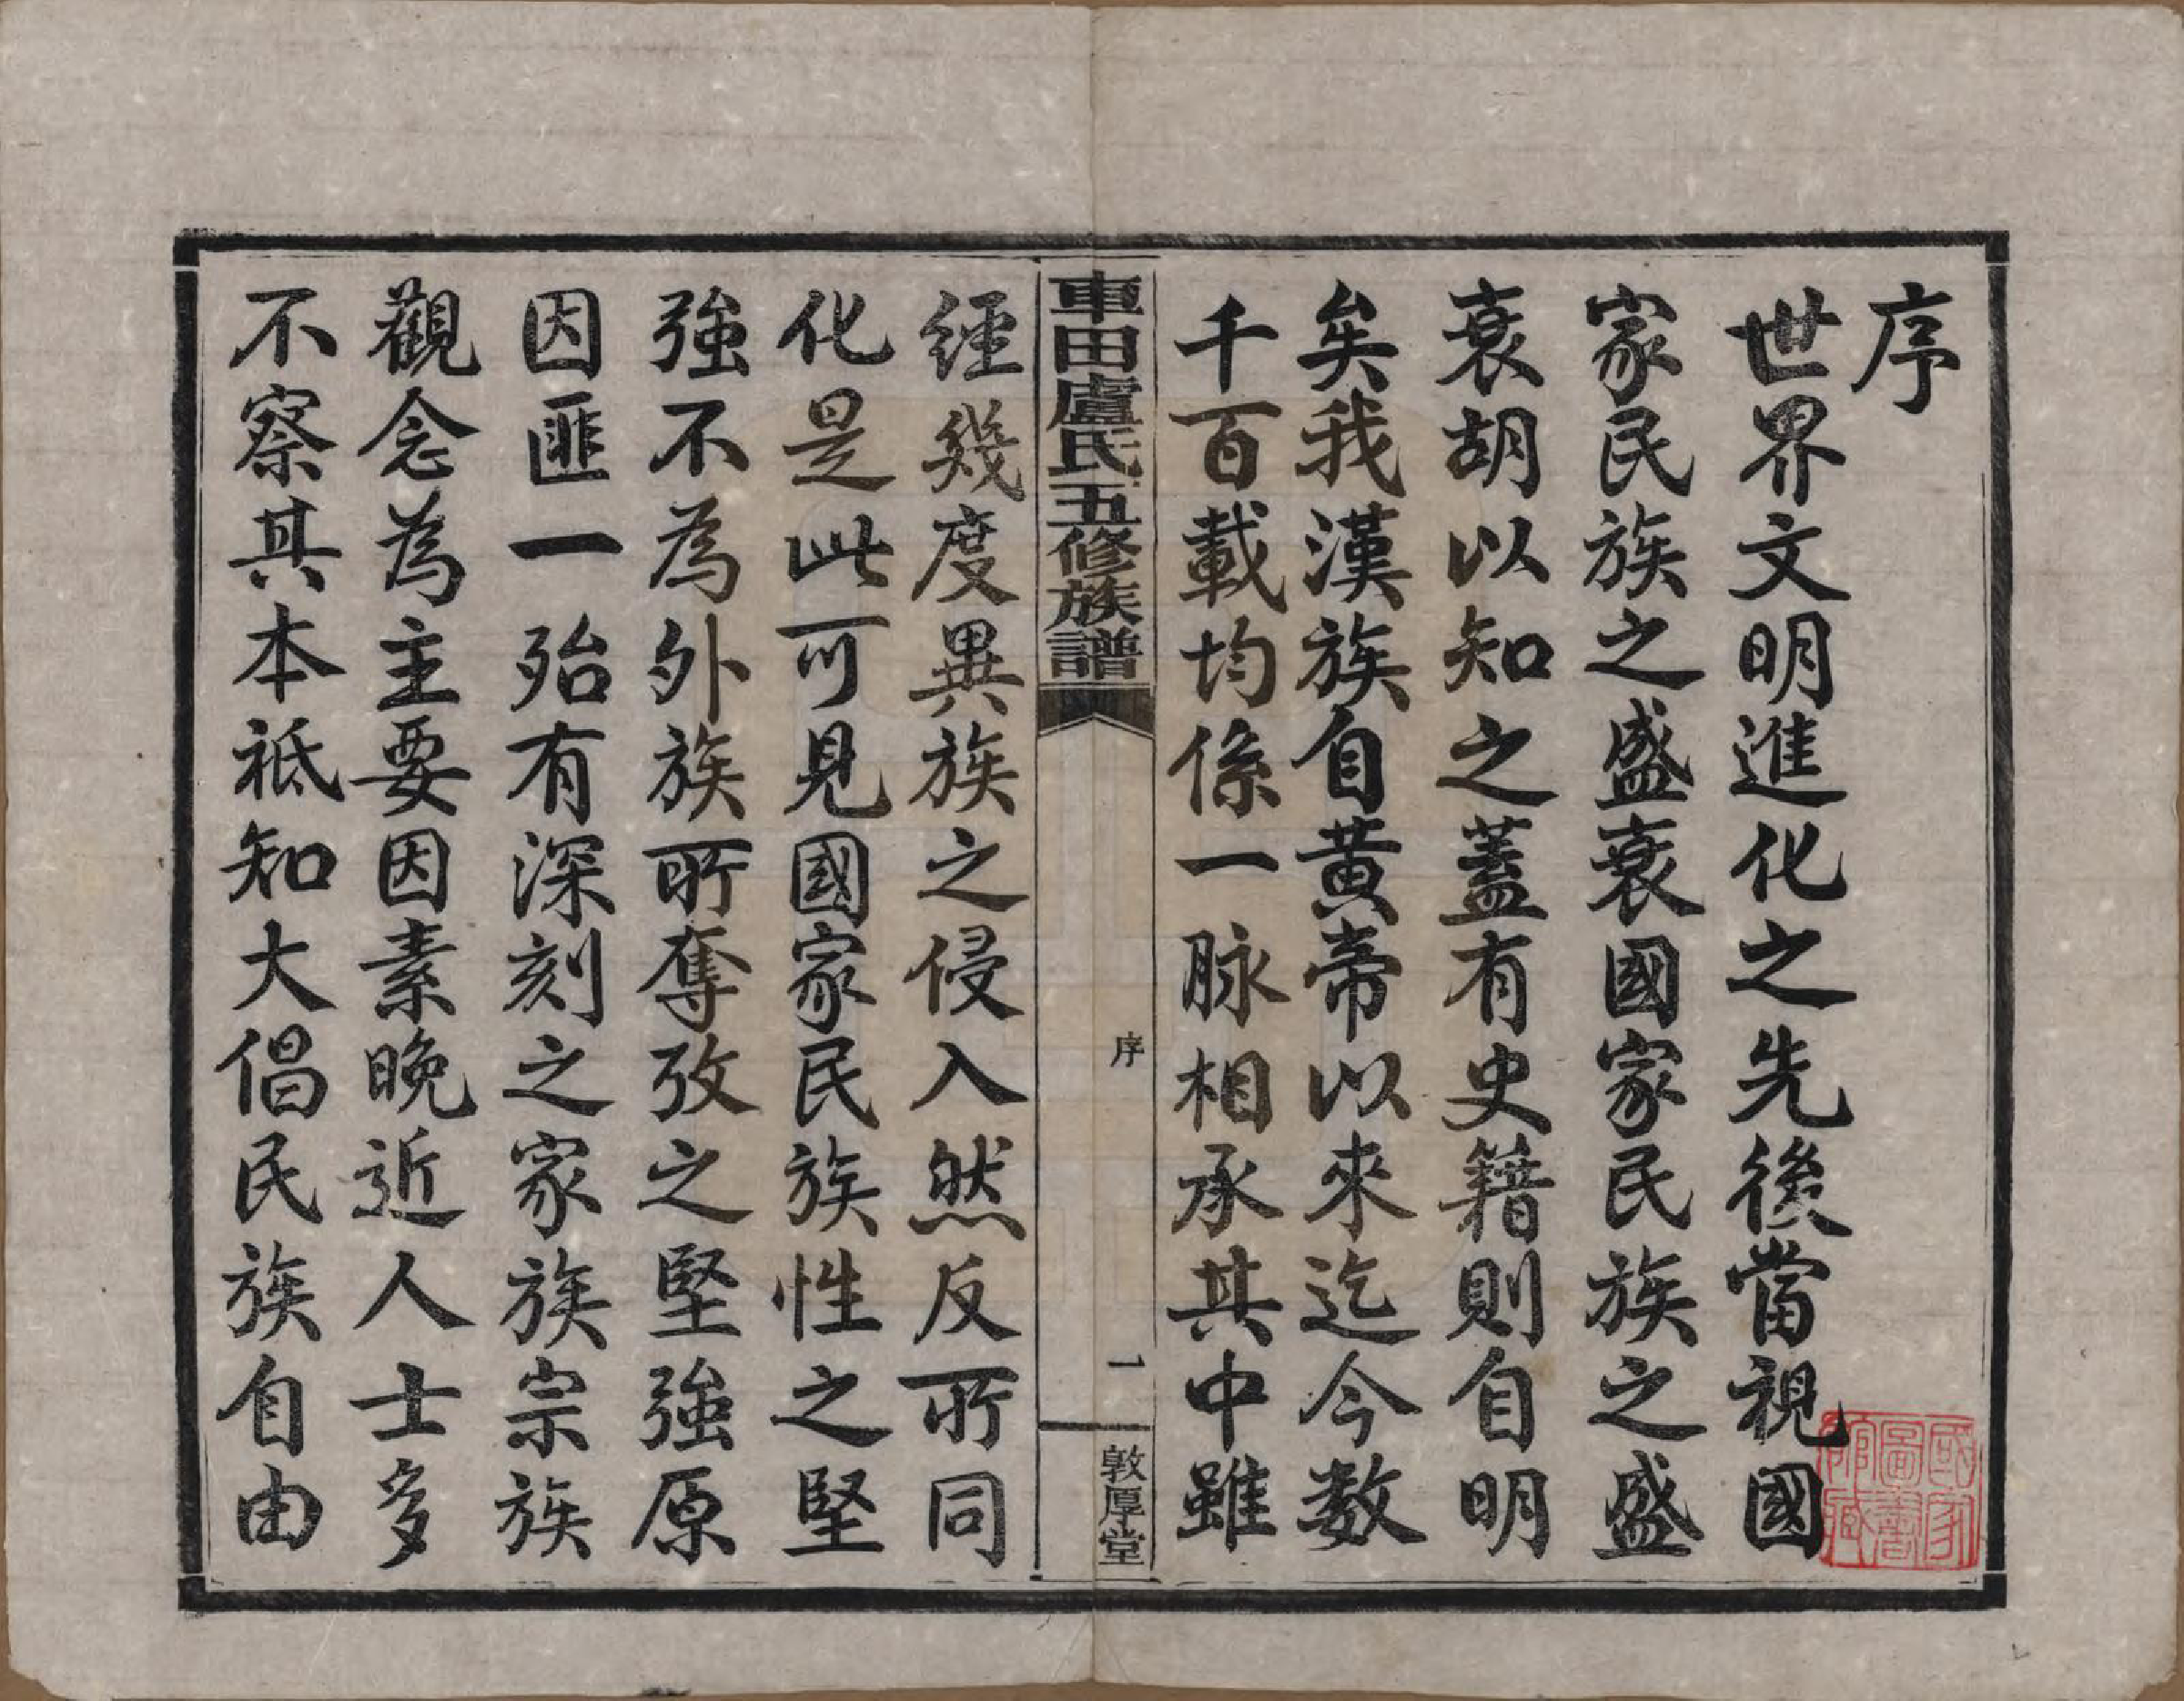 序
世界文明進化之先後當視國
家民族之盛衰國家民族之盛
衰胡以知之蓋有史籍則自明
矣我漢族自黃帝以來迄今数
千百載均係一脉相承其中雖
車田盧氏五修族譜
序
一
敦厚堂
經幾度異族之侵入然反所同
化是此可見國家民族性之堅
強不為外族所奪攷之堅強原
因匪一殆有深刻之家族宗族
觀念為主要因素晚近人士多
不察其本祗知大倡民族自由
國家圖書館藏